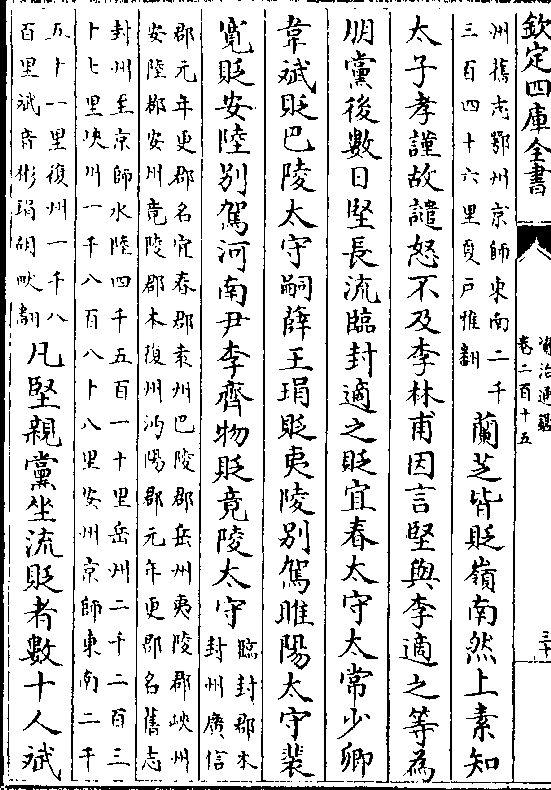 欽定四庫全書
資治通鑑
卷二百十五
三十
州舊志鄂州京師東南二千
三百四十六里夏戸雅翻
蘭芝皆貶嶺南然上素知
太子孝謹故譴怒不及李林甫因言堅與李適之等為
朋黨後數日堅長流臨封適之貶宜春太守太常少卿
韋斌貶巴陵太守嗣薛王琄貶夷陵别駕睢陽太守裴
寛貶安陸别駕河南尹李齊物貶竟陵太守
臨封郡本
封州廣信
郡元年更郡名宜春郡袁州巴陵郡岳州夷陵郡峽州
安陸郡安州竟陵郡本復州沔陽郡元年更郡名舊志
封州至京師水陸四千五百一十里岳州二千二百三
十七里峽州一千八百八十八里安州京師東南二千
五十一里復州一千八
百里斌音彬琄胡畎翻
凡堅親黨坐流貶者數十人斌